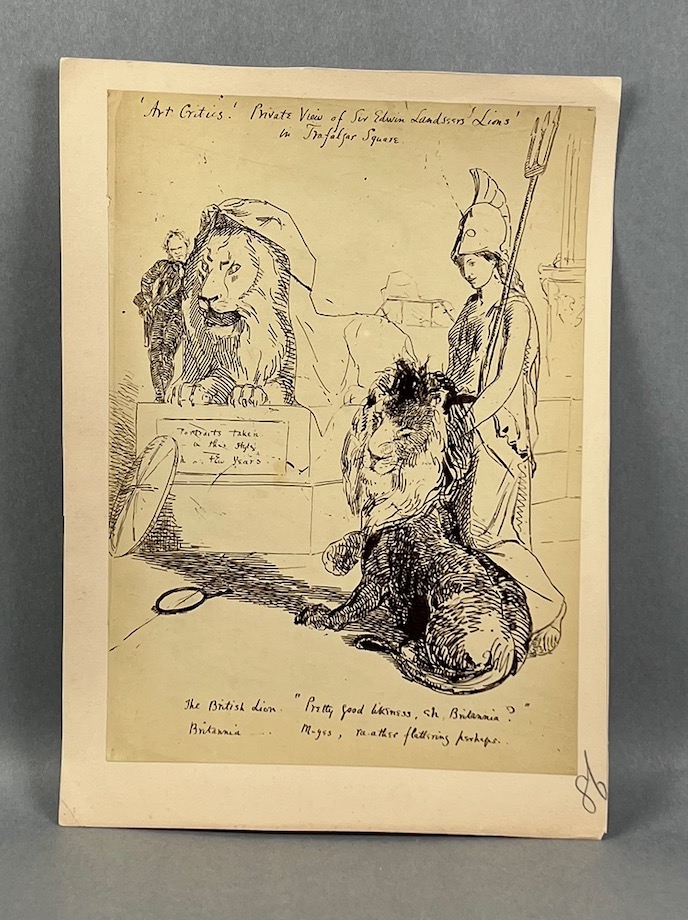 'Art Critics'. Private View of Sir Edwin Landseers' 'Lions'
in Trafalgar Square.
Portraits taken
in this style
Few Years
The British Lion. "Pretty good likeness, eh, Britannia?"
Britannia .... M-yes, ra-ather flattering perhaps..
86